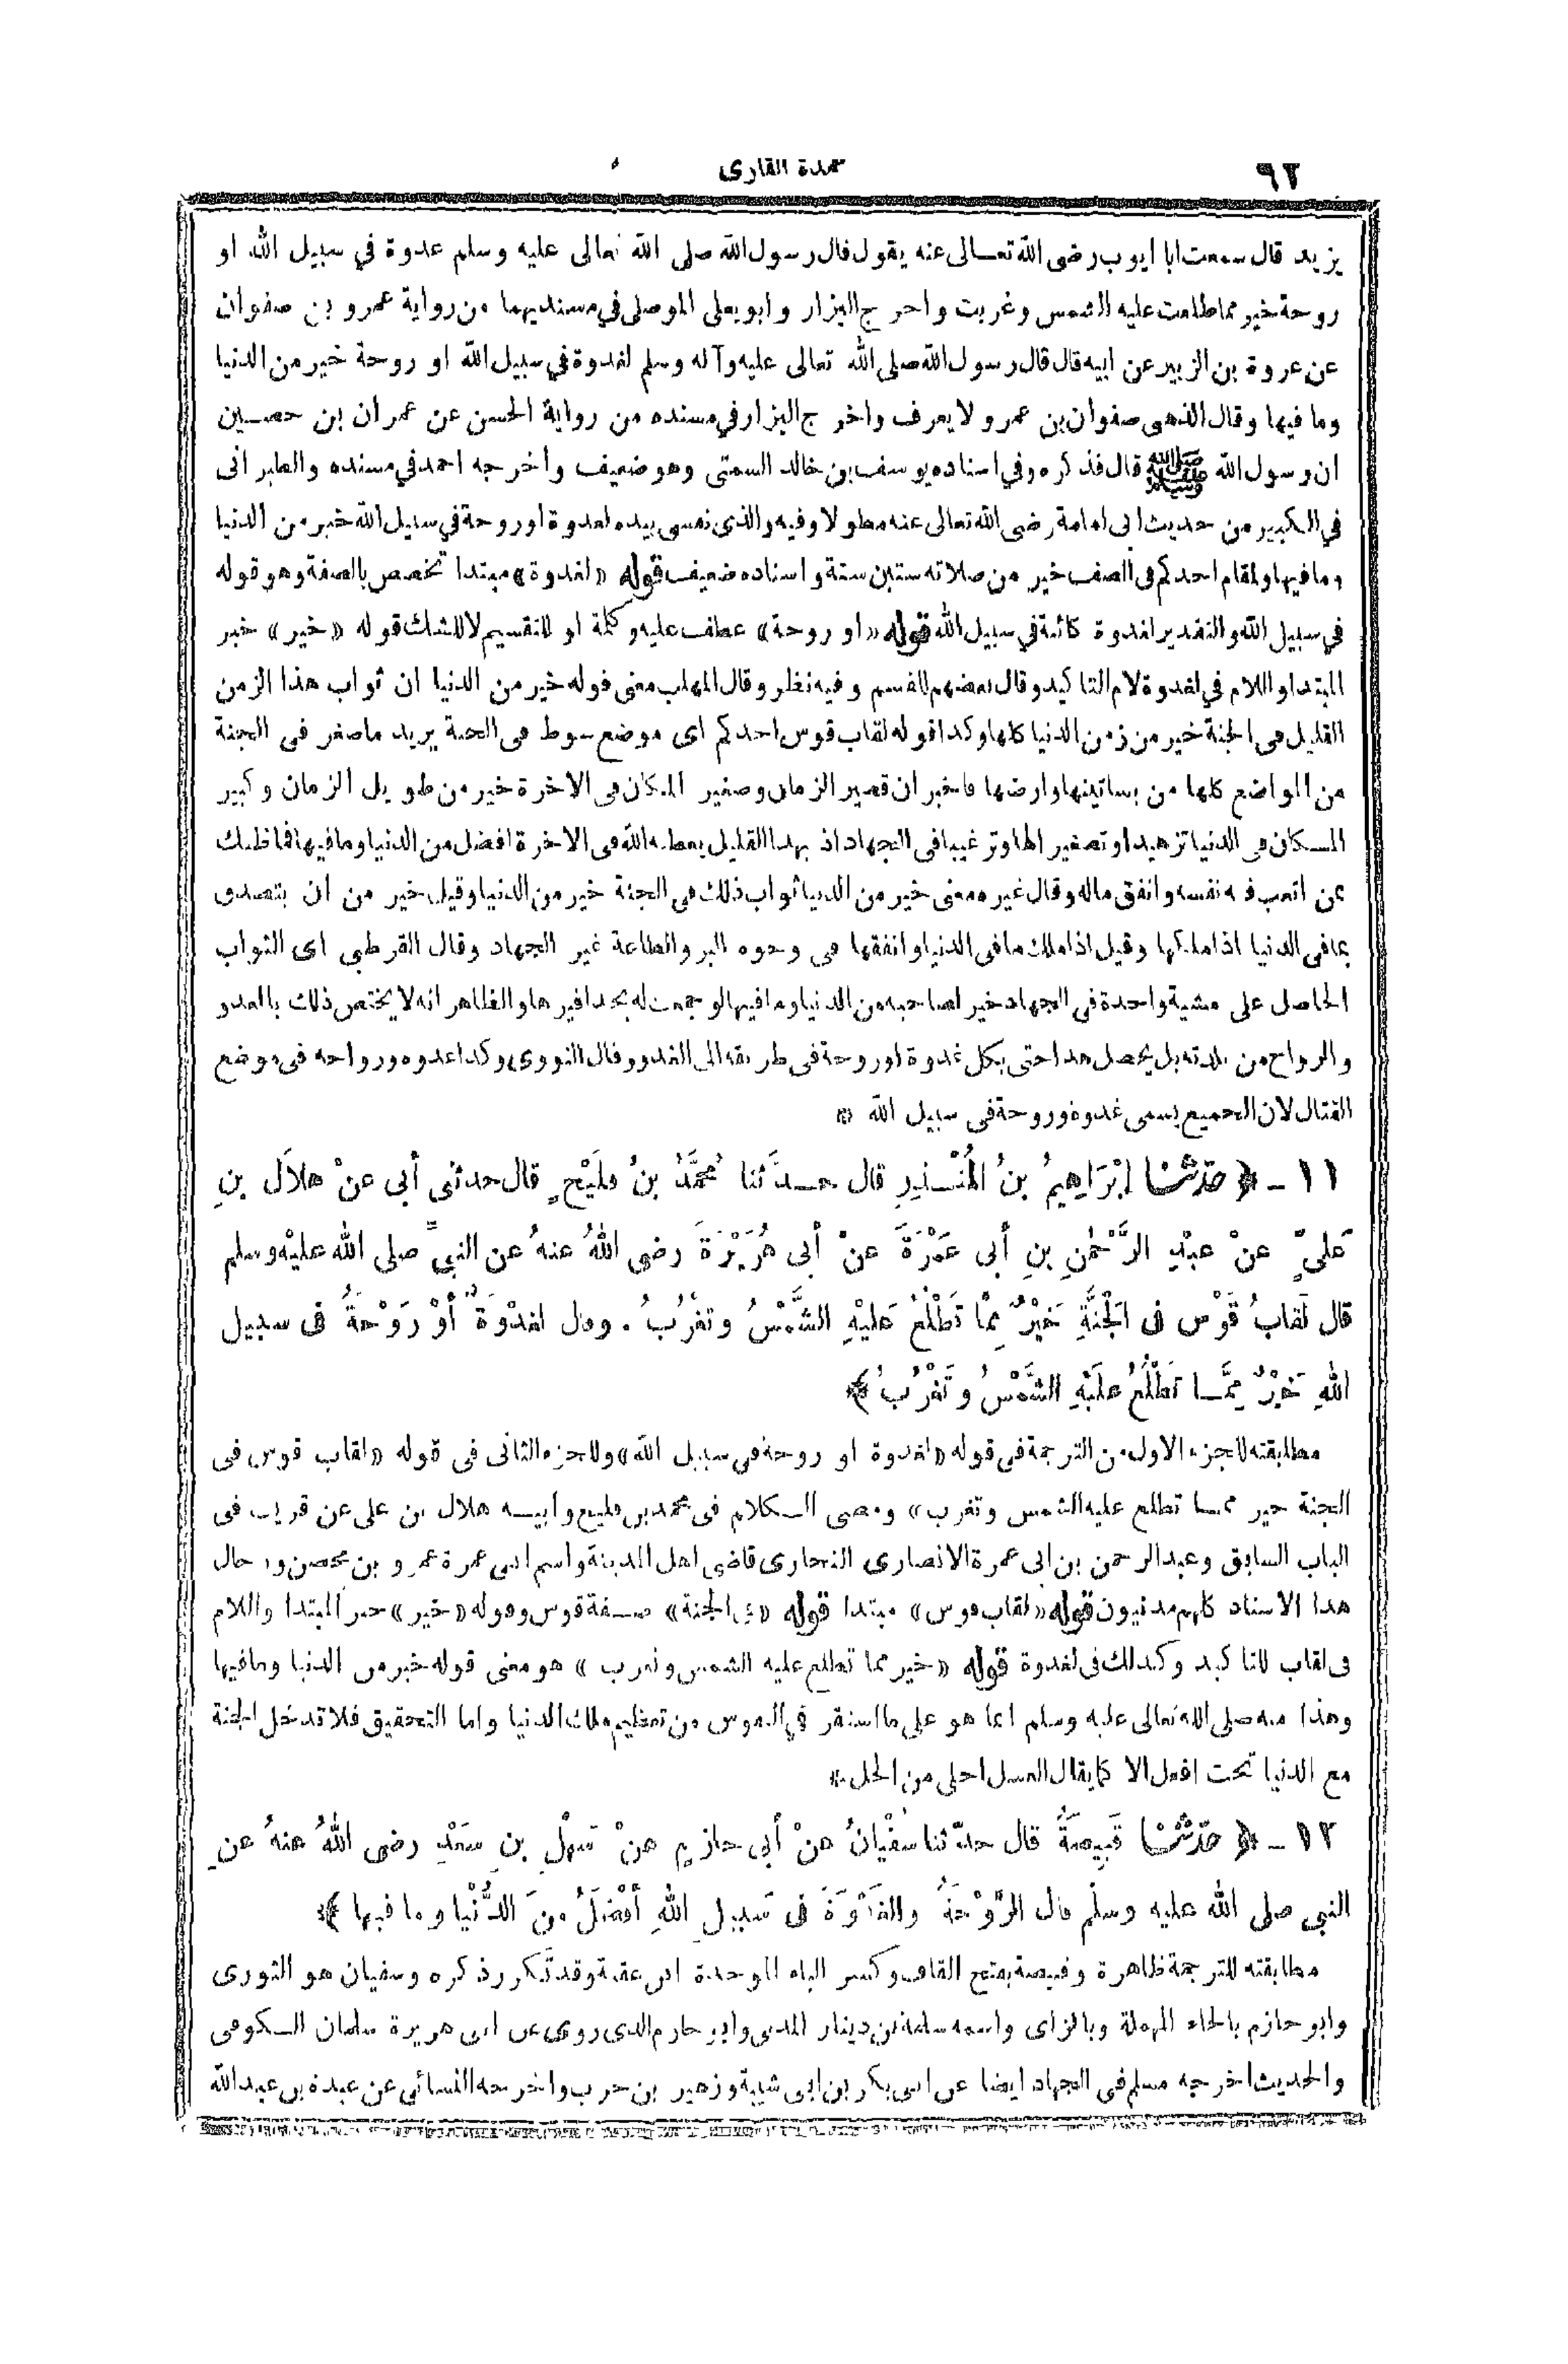 ٩٢
عمدة القارى
يزيد قال سمعت ابا ايوب رضى الله تعالى عنه يقول قال رسول الله صلى الله تعالى عليه وسلم غدوة في سبيل الله او
روحة خير مما طلعت عليه الشمس وغربت واخرج البزار وابو يعلى الموصلى في مسنديهما من رواية عمرو بن صفوان
عن عروة بن الزبير عن ابيه قال قال رسول الله صلى الله تعالى عليه وآله وسلم لغدوة في سبيل الله او روحة خير من الدنيا
وما فيها وقال الذهبى صفوان بن عمرو لا يعرف واخرج البزار في مسنده من رواية الحسن عن عمران بن حصين
ان رسول الله ﷺ قال فذكره وفي اسناده يوسف بن خالد السمتى وهو ضعيف واخرجه احمد في مسنده والطبرانى
في الكبير من حديث ابى امامة رضى الله تعالى عنه مطولا وفيه والذى نفسى بيده لغدوة او روحة في سبيل الله خير من الدنيا
وما فيها ولمقام احدكم في الصف خير من صلاته ستين سنة واسناده ضعيف قوله «لغدوة» مبتدا تخصص بالصفة وهو قوله
في سبيل الله والتقدير لغدوة كائنة في سبيل الله قوله «او روحة» عطف عليه وكلمة او للتقسيم لا للشك قوله «خير» خبر
المبتدا واللام في لغدوة لام التاكيد وقال بعضهم للقسم وفيه نظر وقال المهلب معنى قوله خير من الدنيا ان ثواب هذا الزمن
القليل فى الجنة خير من زمن الدنيا كلها وكذا قوله لقاب قوس احدكم اى موضع سوط فى الجنة يريد ما صغر فى الجنة
من المواضع كلها من بساتينها وارضها فاخبر ان قصير الزمان وصغير المكان فى الاخرة خير من طويل الزمان وكبير
المكان فى الدنيا تزهيدا وتصغيرا لها وترغيبا فى الجهاد اذ بهذا القليل يعطيه الله فى الاخرة افضل من الدنيا وما فيها فما ظنك
بمن اتعب فيه نفسه وانفق ماله وقال غيره معنى خير من الدنيا ثواب ذلك فى الجنة خير من الدنيا وقيل خير من ان يتصدق
بما فى الدنيا اذا ملكها وقيل اذا ملك ما فى الدنيا وانفقها فى وجوه البر والطاعة غير الجهاد وقال القرطبى اى الثواب
الحاصل على مشية واحدة فى الجهاد خير لصاحبه من الدنيا وما فيها لو جمعت له بحذافيرها والظاهر انه لا يختص ذلك بالغدو
والرواح من بلدته بل يحصل هذا حتى بكل غدوة او روحة فى طريقه الى الغدو وقال النووى وكذا غدوه ورواحه فى موضع
القتال لان الجميع يسمى غدوة وروحة فى سبيل الله *
١١ - ﴿ حَدَّثَنَا إِبْرَاهِيمُ بنُ الْمُنْذِرِ قال حدَّثنا مُحَمَّدُ بنُ فُلَيْحٍ قال حدثنى أبى عنْ هلاَلِ بنِ
عَلىٍّ عنْ عبْدِ الرَّحْمٰنِ بنِ أبى عَمْرَةَ عنْ أبى هُرَيْرَةَ رضى اللهُ عنهُ عن النبىِّ صلى الله عليْه وسلم
قال لَقابُ قَوْسٍ فى الجَنَّةِ خَيْرٌ مِمَّا تَطْلُعُ عَلَيْهِ الشَّمْسُ وتغْرُبُ . وقال لغَدْوَةٌ أوْ رَوْحَةٌ فى سبيلِ
اللهِ خَيْرٌ مِمَّا تَطْلُعُ علَيْهِ الشَّمْسُ وتَغْرُبُ ﴾
مطابقته للجزء الاول من الترجمة فى قوله «لغدوة او روحة فى سبيل الله» وللجزء الثانى فى قوله «لقاب قوس فى
الجنة خير مما تطلع عليه الشمس وتغرب» ومضى الكلام فى محمد بن فليح وابيه هلال بن على عن قريب فى
الباب السابق وعبد الرحمن بن ابى عمرة الانصارى النجارى قاضى اهل المدينة واسم ابى عمرة عمرو بن محصن ورجال
هذا الاسناد كلهم مدنيون قوله «لقاب قوس» مبتدا قوله «فى الجنة» صفة قوس وقوله «خير» خبر المبتدا واللام
فى لقاب للتاكيد وكذلك فى لغدوة قوله «خير مما تطلع عليه الشمس وتغرب» هو معنى قوله خير من الدنيا وما فيها
وهذا منه صلى الله تعالى عليه وسلم انما هو على ما استقر في النفوس من تعظيم ملك الدنيا واما التحقيق فلا تدخل الجنة
مع الدنيا تحت افعل الا كما يقال العسل احلى من الخل *
١٢ - ﴿ حَدَّثَنَا قَبِيصَةُ قال حدّثنا سُفْيَانُ عنْ أبى حازِمٍ عنْ سَهْلِ بنِ سَعْدٍ رضى اللهُ عنهُ عنِ
النبى صلى الله عليه وسلّم قال الرَّوْحَةُ والغَدْوَةُ فى سَبِيلِ اللهِ أفْضَلُ منَ الدُّنْيا وما فيها ﴾
مطابقته للترجمة ظاهرة وقبيصة بفتح القاف وكسر الباء الموحدة ابن عقبة وقد تكرر ذكره وسفيان هو الثورى
وابو حازم بالحاء المهملة وبالزاى واسمه سلمة بن دينار المدنى وابو حازم الذى روى عن ابى هريرة سلمان الكوفى
والحديث اخرجه مسلم فى الجهاد ايضا عن ابى بكر بن ابى شيبة وزهير بن حرب واخرجه النسائى عن عبدة بن عبد الله